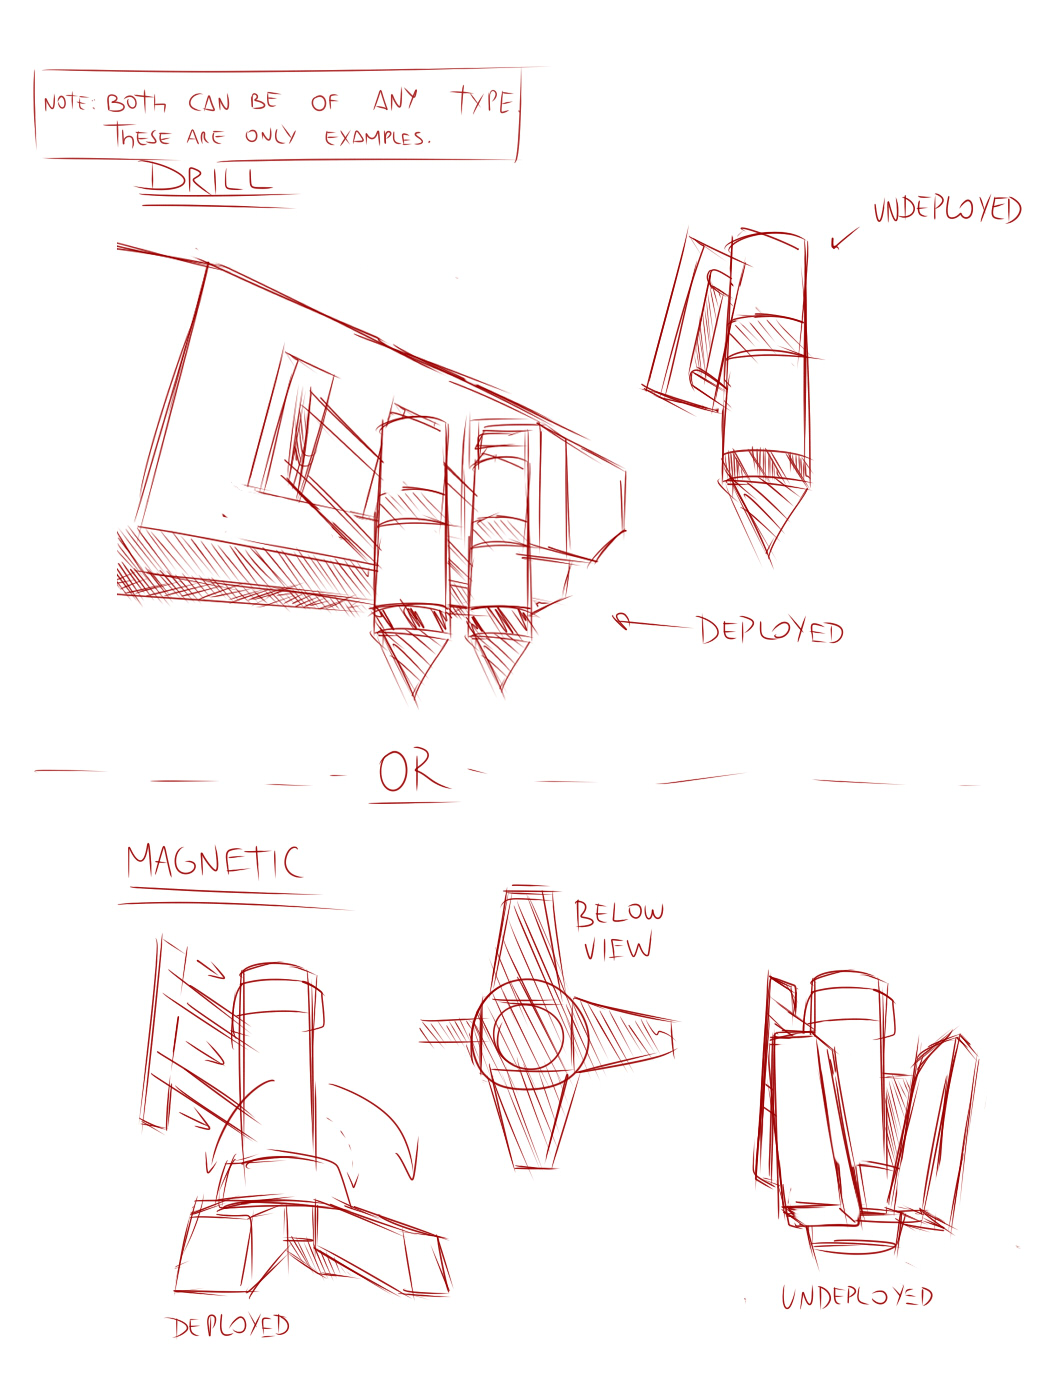 NOTE: BOTH CAN BE OF ANY TYPE.
THESE ARE ONLY EXAMPLES.
DRILL
UNDEPLOYED
DEPLOYED
OR
MAGNETIC
BELOW
VIEW
DEPLOYED
UNDEPLOYED